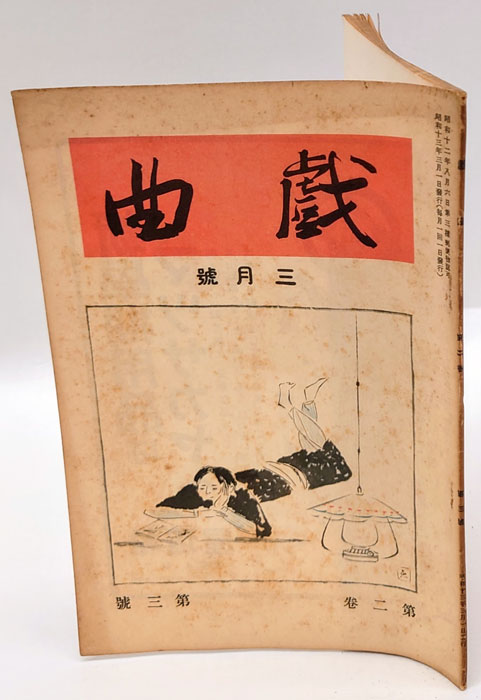 昭和十二年八月六日第三種郵便物認可
昭和十三年三月一日發行(每月一回一日發行)
戯曲
三月號
第二卷 第三號